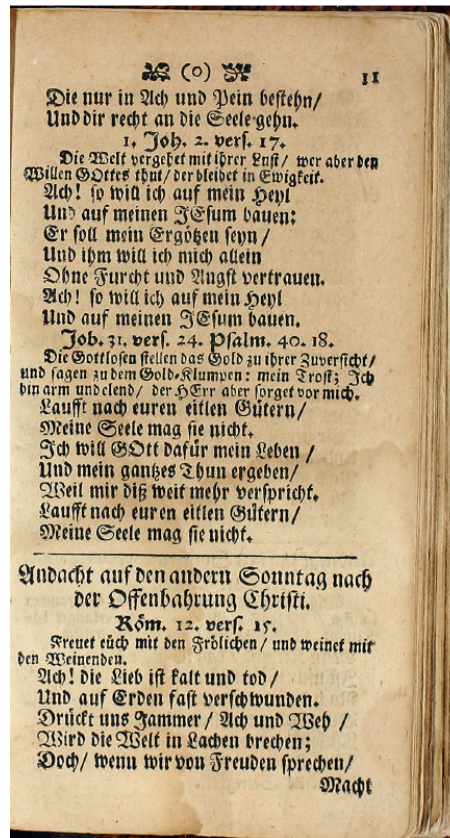 (0) 11
Die nur in Ach und Pein bestehn/
Und dir recht an die Seele gehn.
1. Joh. 2. vers. 17.
Die Welt vergehet mit ihrer Lust/ wer aber den
Willen GOttes thut/ der bleibet in Ewigkeit.
Ach! so will ich auf mein Heyl
Und auf meinen JEsum bauen:
Er soll mein Ergötzen seyn/
Und ihm will ich mich allein
Ohne Furcht und Angst vertrauen.
Ach! so will ich auf mein Heyl
Und auf meinen JEsum bauen.
Job. 31. vers. 24. Psalm. 40. 18.
Die Gottlosen stellen das Gold zu ihrer Zuversicht/
und sagen zu dem Gold-Klumpen: mein Trost; Ich
bin arm und elend/ der HErr aber sorget vor mich.
Laufft nach euren eitlen Gütern/
Meine Seele mag sie nicht.
Ich will GOtt dafür mein Leben /
Und mein gantzes Thun ergeben/
Weil mir diß weit mehr verspricht.
Laufft nach euren eitlen Gütern/
Meine Seele mag sie nicht.
Andacht auf den andern Sonntag nach
der Offenbahrung Christi.
Röm. 12. vers. 15.
Freuet eüch mit den Frölichen/ und weinet mit
den Weinenden.
Ach! die Lieb ist kalt und tod/
Und auf Erden fast verschwunden.
Drückt uns Jammer/ Ach und Weh /
Wird die Welt in Lachen brechen;
Doch/ wenn wir von Freuden sprechen/
Macht